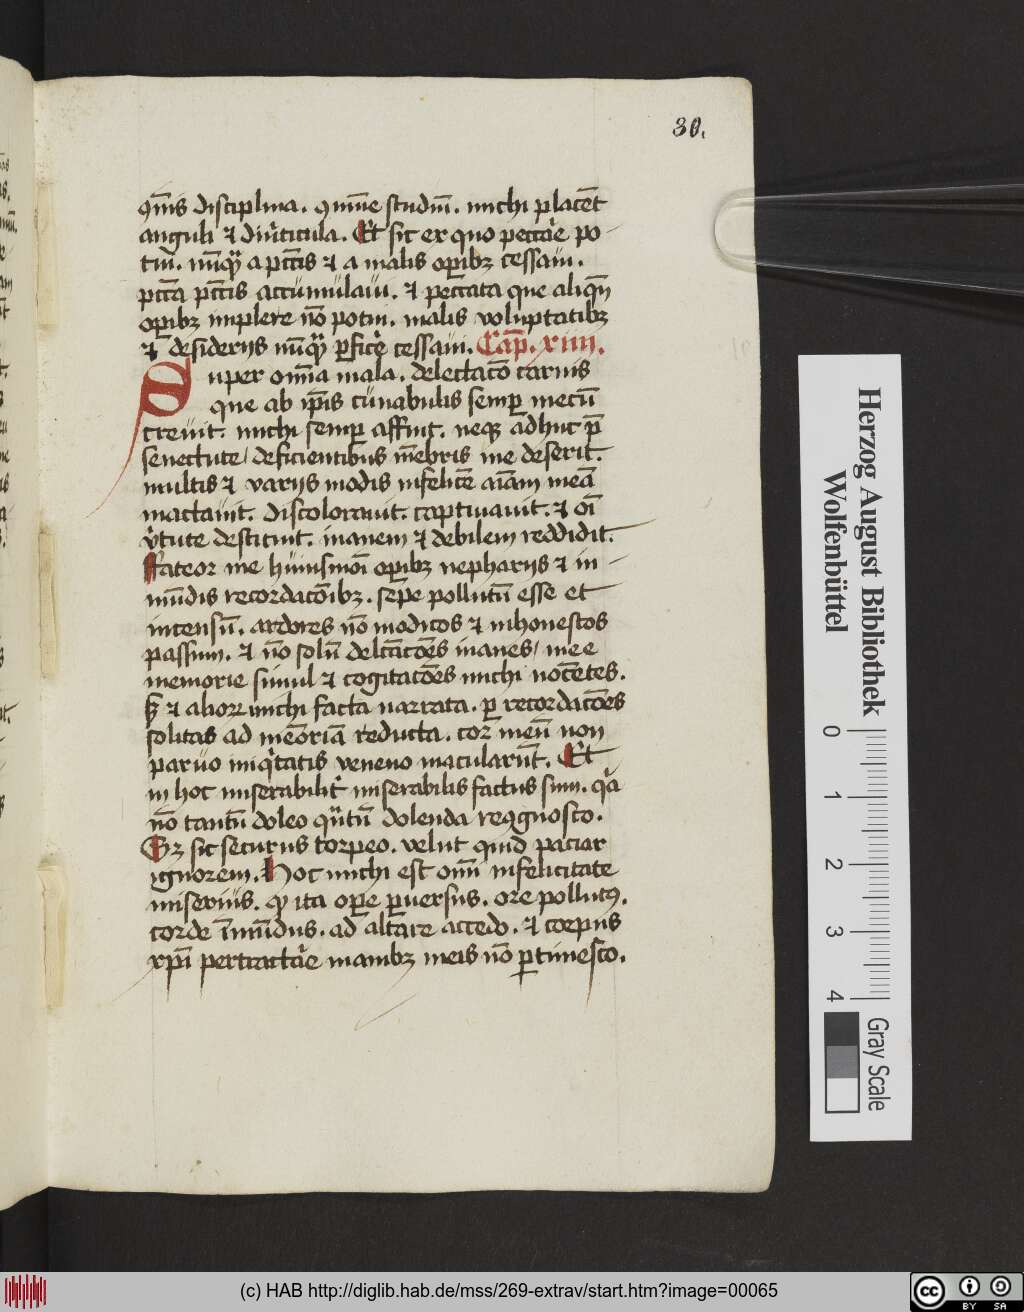 30.
qm̄is disciplina. qm̄ue studiū. michi placēt
anguli ⁊ diũticula. Et sic ex quo peccãe po-
tui. nūqꝫ a pctīs ⁊ a malis opibꝫ cessaui.
pctā pctīs accumulaui. ⁊ peccata que aliqn̄
opibꝫ implere nō potui. malis voluptatibꝫ
⁊ desiderijs nūqꝫ pficẽ cessaui. Cap̄. xiiij.
Super om̄ia mala. delectacō carnis
que ab ip̄is cunabulis semp mecū
creuit. michi semp affuit. neqꝫ adhuc p̄
senectute deficientibus mēbris me deserit.
multis ⁊ varijs modis infelicē aīam meā
mactauit. discolorauit. captiuauit. ⁊ oī
ṽtute destituit. inanem ⁊ debilem reddidit.
Fateor me huiusmōi opibꝫ nepharijs ⁊ in-
mūdis recordacōibꝫ. sepe pollutū esse et
incensū. ardores nō modicos ⁊ inhonestos
passum. ⁊ nō solū delcāc̄ōes inanes mee
memorie simul ⁊ cogitacōes michi nocētes.
sꝫ ⁊ alioꝝ michi facta narrata. ꝑ recordacōes
solitas ad memōriā reducta. cor meū non
paruo iniq̃tatis veneno macularūt. Et
in hoc miserabilit̃ miserabilis factus sum. qã
nō tantū doleo qūtū dolenda recognosco.
Sꝫ sic securus torpeo. velut quid paciar
ignorem. Hoc michi est om̄i infelicitate
miserius. qꝫ ita ope ꝑuersus. ore pollutꝰ.
corde īmūdus. ad altare accedo. ⁊ corpus
xp̄i pertractãe manibꝫ meis nō ꝑtimesco.
Herzog August Bibliothek
Wolfenbüttel
0 1 2 3 4
Gray Scale
(c) HAB http://diglib.hab.de/mss/269-extrav/start.htm?image=00065
cc BY SA